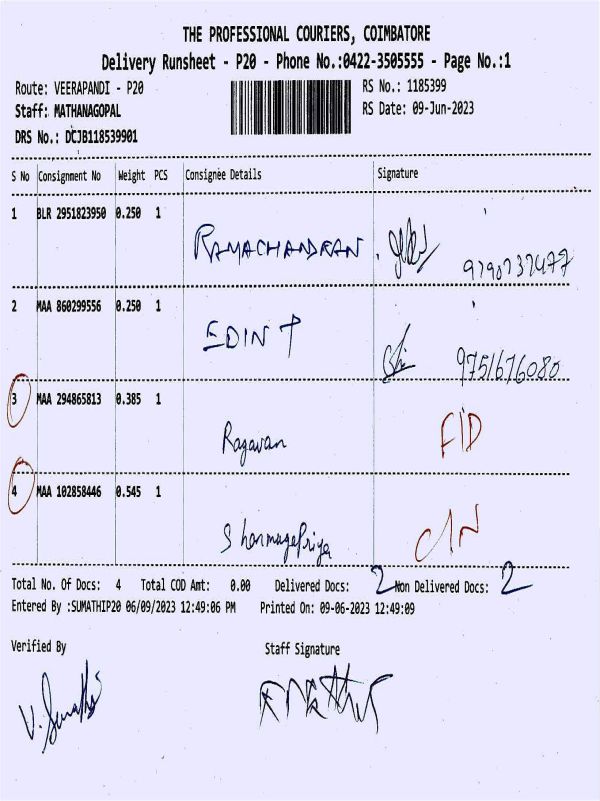 THE PROFESSIONAL COURIERS, COIMBATORE
Delivery Runsheet - P20 - Phone No.:0422-3505555 - Page No.:1
Route: VEERAPANDI - P20 RS No.: 1185399
Staff: MATHANAGOPAL RS Date: 09-Jun-2023
DRS No.: DCJB118539901
S No Consignment No Weight PCS Consignee Details Signature
1 BLR 2951823950 0.250 1
RAMACHANDRAN 9790737477
2 MAA 860299556 0.250 1
EDIN P 9751676080
3 MAA 294865813 0.385 1
Ragavan FID
4 MAA 102858446 0.545 1
ShanmugaPriya C/N
Total No. Of Docs: 4 Total COD Amt: 0.00 Delivered Docs: 2 Non Delivered Docs: 2
Entered By :SUMATHIP20 06/09/2023 12:49:06 PM Printed On: 09-06-2023 12:49:09
Verified By Staff Signature
V. Sumathi